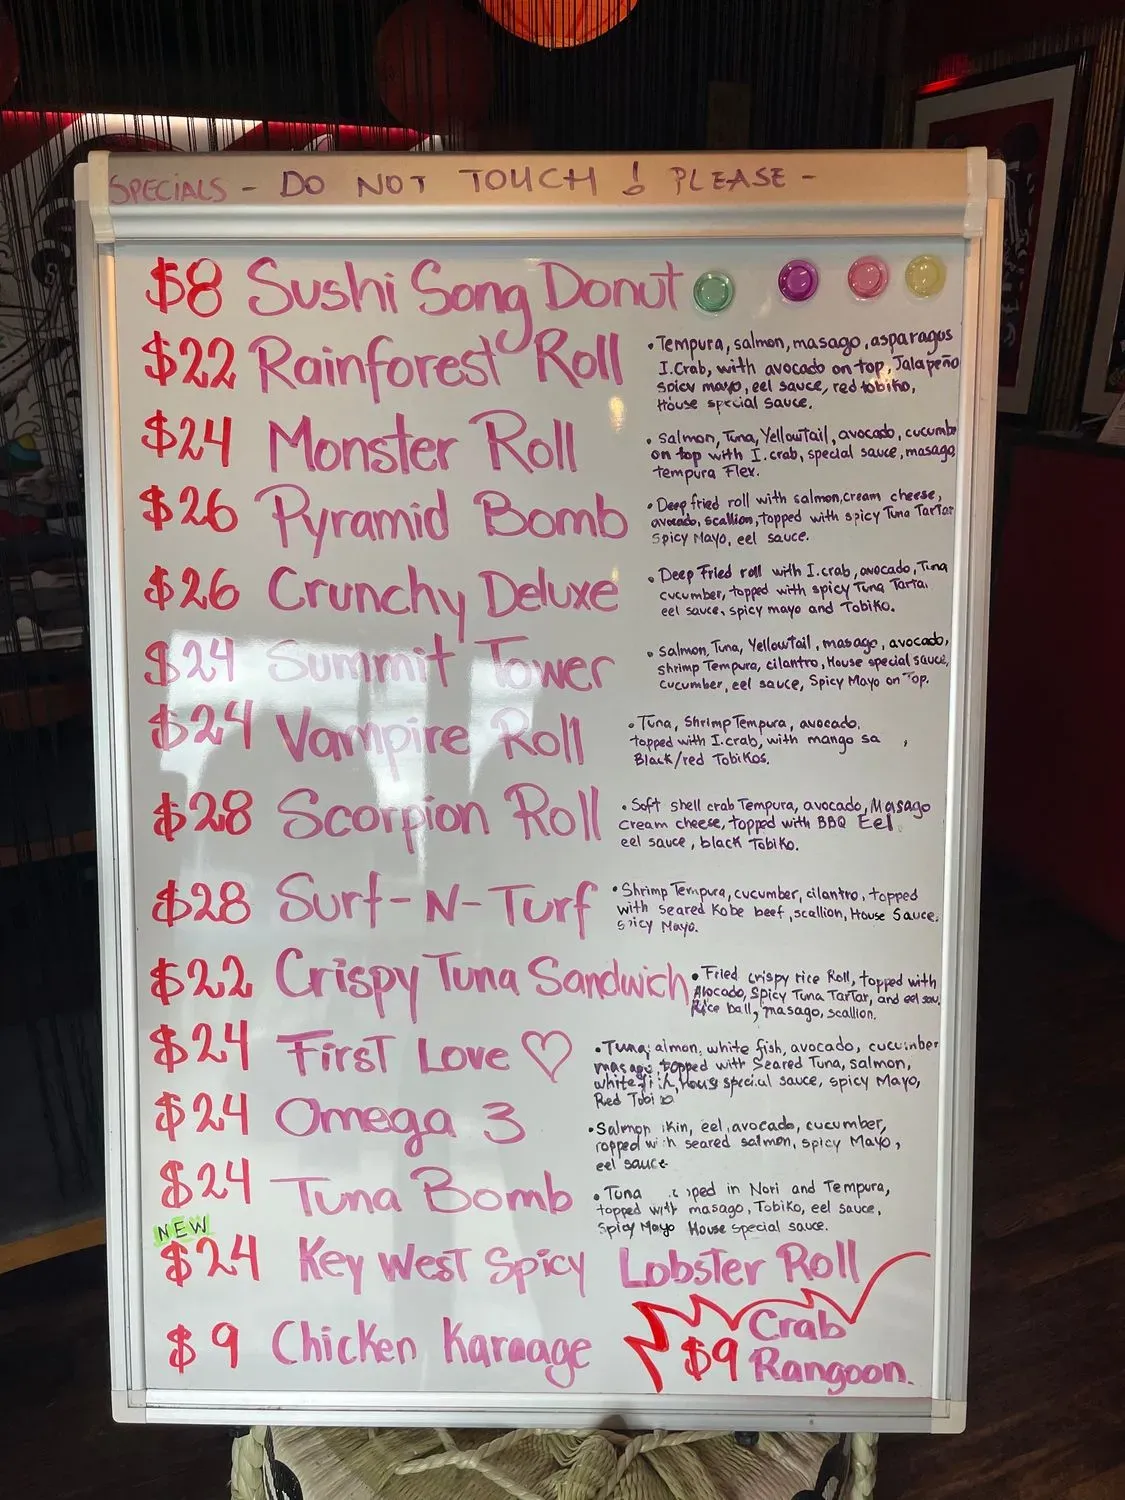 SPECIALS - DO NOT TOUCH ! PLEASE -
$8 Sushi Song Donut
$22 Rainforest Roll
• Tempura, salmon, masago, asparagus
I.Crab, with avocado on top, Jalapeño
spicy mayo, eel sauce, red tobiko,
House special sauce.
$24 Monster Roll
• salmon, Tuna, Yellowtail, avocado, cucumb
on top with I.crab, special sauce, masago,
tempura Flex.
$26 Pyramid Bomb
• Deep fried roll with salmon, cream cheese,
avocado, scallion, topped with spicy Tuna TarTar
Spicy Mayo, eel sauce.
$26 Crunchy Deluxe
• Deep Fried roll with I.crab, avocado, Tuna
cucumber, topped with spicy Tuna Tarta
eel sauce, spicy mayo and Tobiko.
$24 Summit Tower
• Salmon, Tuna, Yellowtail, masago, avocado,
shrimp Tempura, cilantro, House special sauce,
cucumber, eel sauce, Spicy Mayo on Top.
$24 Vampire Roll
• Tuna, Shrimp Tempura, avocado.
topped with I.crab, with mango sa ,
Black/red Tobikos.
$28 Scorpion Roll
• Soft shell crab Tempura, avocado, Masago
cream cheese, topped with BBQ Eel
eel sauce, black Tobiko.
$28 Surf-N-Turf
• Shrimp Tempura, cucumber, cilantro, topped
with seared Kobe beef, scallion, House Sauce.
Spicy Mayo.
$22 Crispy Tuna Sandwich
• Fried crispy rice Roll, topped with
Avocado, Spicy Tuna TarTar, and eel sau.
Rice ball, masago, scallion.
$24 First Love ♡
• Tuna, almon, white fish, avocado, cucumber
masago topped with Seared Tuna, salmon,
white fish, House special sauce, spicy Mayo,
Red Tobi o
$24 Omega 3
• Salmon skin, eel, avocado, cucumber,
topped with seared salmon, spicy Mayo,
eel sauce
$24 Tuna Bomb
• Tuna pped in Nori and Tempura,
topped with masago, Tobiko, eel sauce,
Spicy Mayo House special sauce.
NEW
$24 Key West Spicy Lobster Roll
$9 Chicken Karaage
$9 Crab
Rangoon.